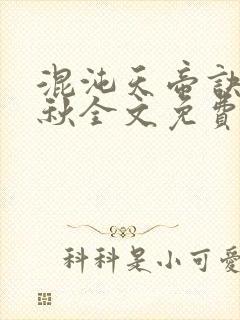 混沌天帝訣
秋全文免費
科科是小可愛